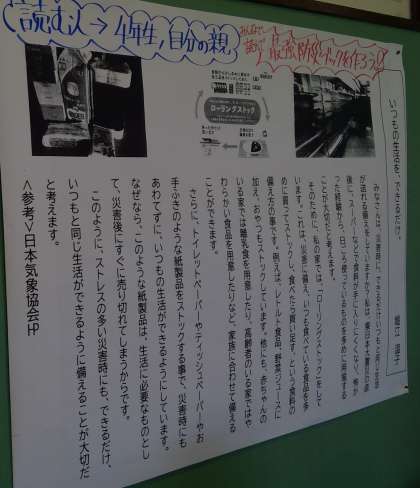 読む人→4年生,自分の親
みんなで
読んで
最強防災ブックを作ろう!!
ローリングストック
いつもの生活を、できるだけ
みなさんは、災害時に、できるだけいつもと同じ生活
が送れる備えをしていますか?私は、東日本大震災の直
後に、スーパーなどで食料が手に入りにくくなり、怖か
った経験から、日ごろ使っているものを多めに用意する
ことが大切だと考えます。
そのために、私の家では、「ローリングストック」をして
います。これは、災害に備え、いつも食べている食品を多
めに買ってストックし、食べたら買い足す、という食料の
備え方の事です。例えば、レトルト食品、野菜ジュースに
加え、おやつもストックしています。他にも、赤ちゃんの
いる家では離乳食を用意したり、高齢者のいる家ではや
わらかい食品を用意したりなど、家族に合わせて備える
ことができます。
さらに、トイレットペーパーやティッシュペーパーやお
手ふきのような紙製品をストックする事で、災害時にも
あわてずに、いつもの生活ができるようにしています。
なぜなら、このような紙製品は、生活に必要なものとし
て、災害後にすぐに売り切れてしまうからです。
このように、ストレスの多い災害時にも、できるだけ、
いつもと同じ生活ができるように備えることが大切だ
と考えます。
<参考>日本気象協会HP